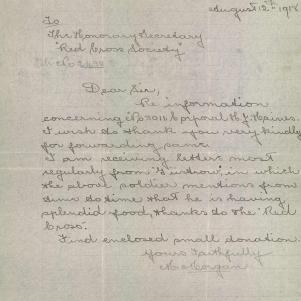 August 12th 1918
To
The Honorary Secretary
"Red Cross Society"
Dear Sir,
Re information
concerning No 3011 Corporal H. J. Haines.
I wish to thank you very kindly
for forwarding same.
I am receiving letters most
regularly from in which
the above soldier mentions from
time to time that he is having
splendid food, thanks to the "Red
Cross".
Find enclosed small donation.
Yours Faithfully
Morgan